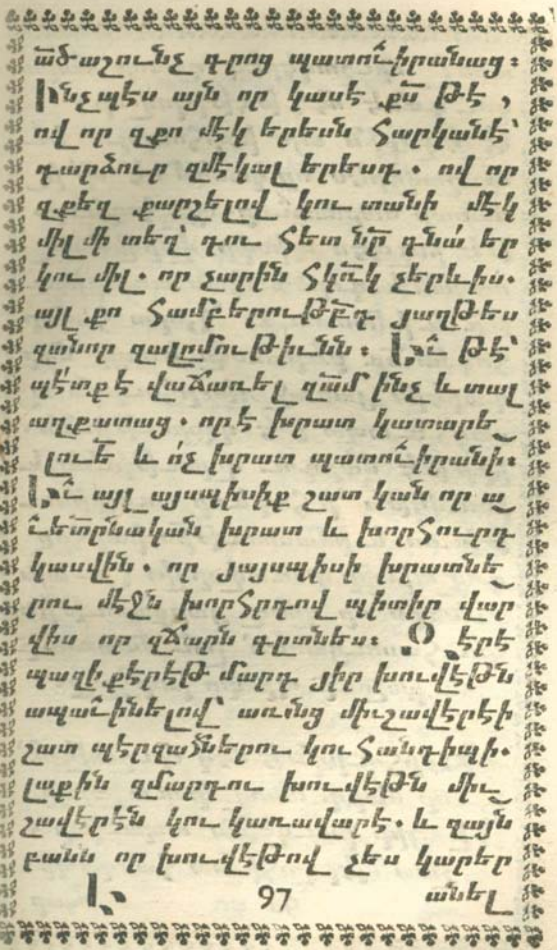 ա՟ծաշունչ գրոց պատուիրանաց։
Ինչպէս այն որ կասէ քս՟ թէ ,
ով որ զքո մէկ երեսն հարկանէ՝
դարձուր զմէկալ երեսդ . ով որ
զքեզ քարշելով կու տանի մէկ
միլ մի տեղ՝ դու հետ նր՟ գնա՛ եր
կու միլ . որ չարին հկռ՟կ չերևիս .
այլ քո համբերութբ՟դ յաղթես
զանոր զալըմութիւնն ։ Եւ թէ՝
պէ՛տք է վաճառել զա՟մ ինչ և տալ
աղքատաց . որ է խրատ կատարե
լուե՟ և ո՛չ խրատ պատուիրանի։
Եւ այլ այսպիսիք շատ կան որ ա
ւետր՟նական խրատ և խորհուրդ
կասվին . որ յայսպիսի խրատնե
րու մէջն խորհրդով պիտիր վար
վիս որ զճարն գըտնես։ Օ երէ
պազիքերէթ մարդ յիր խուվէթն
ապաւինելով՝ առանց միւշավէրէի
շատ պէրզայներու կու հանդիպի .
լաքին զմարդու խուվէթն միւ
շավէրէն կու կառավարէ . և զայն
բանն որ խուվէթով չես կարեր
Ի 97 անել